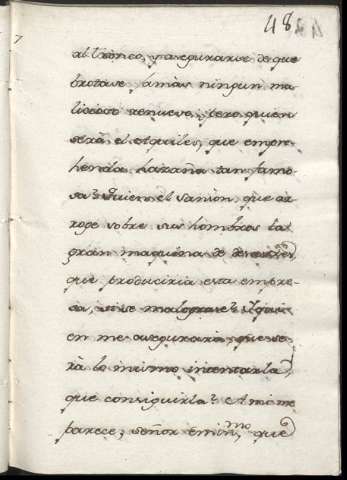 48
al tronco, y asegurarse de que
brotase jamas ningun ma-
licioso renuevo; pero quien
será el etquiles, que empre-
henda hazaña tan famo-
sa? Quien el sanson, que ar-
roge sobre sus hombros la
gran maquina de
que produciria esta empre-
sa, si se malograse? I quie
en me asegurará, que se-
rá lo mismo intentarla,
que conseguirla? A mi me
parece, señor Emin.mo, que